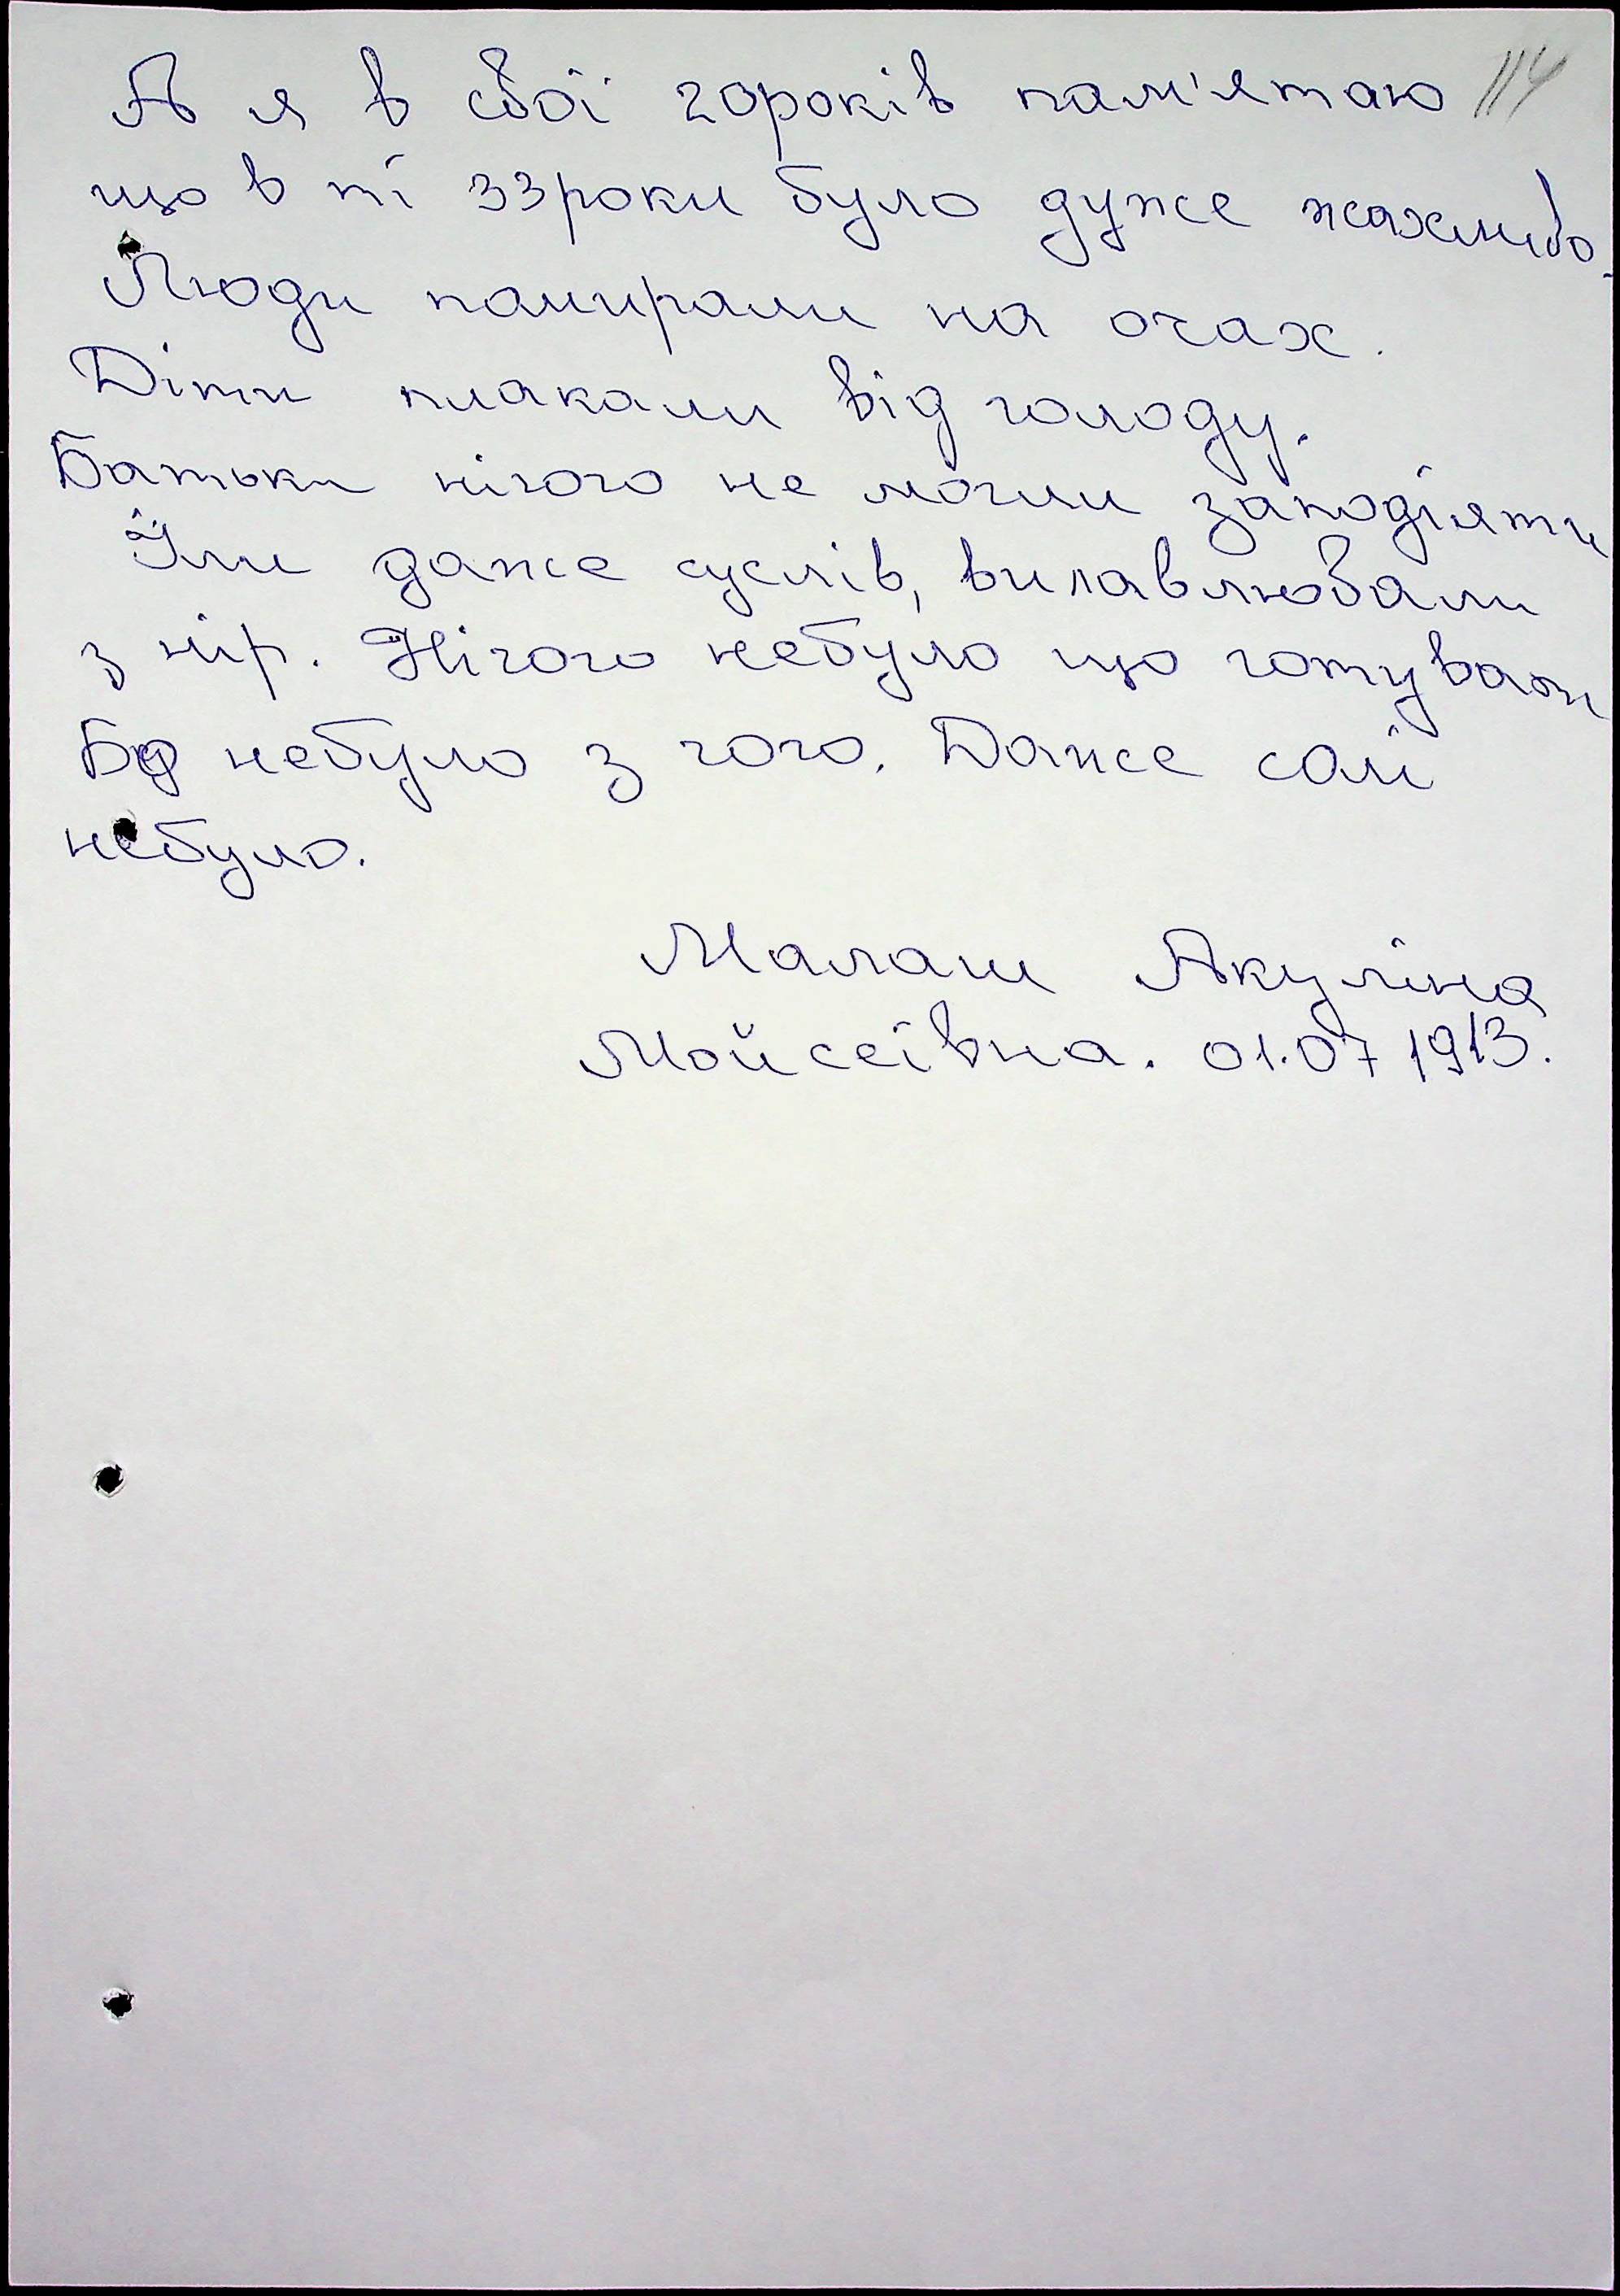 114
А я в свої 20років пам'ятаю
що в ті 33роки було дуже жахливо.
Люди помирали на очах.
Діти плакали від голоду.
Батьки нічого не могли заподіяти
Їли даже суслів, вилавлювали
з нір. Нічого небуло що готувати
Бо небуло з чого. Даже солі
небуло.
Малаш Акуліна
Мойсеївна. 01.07 1913.